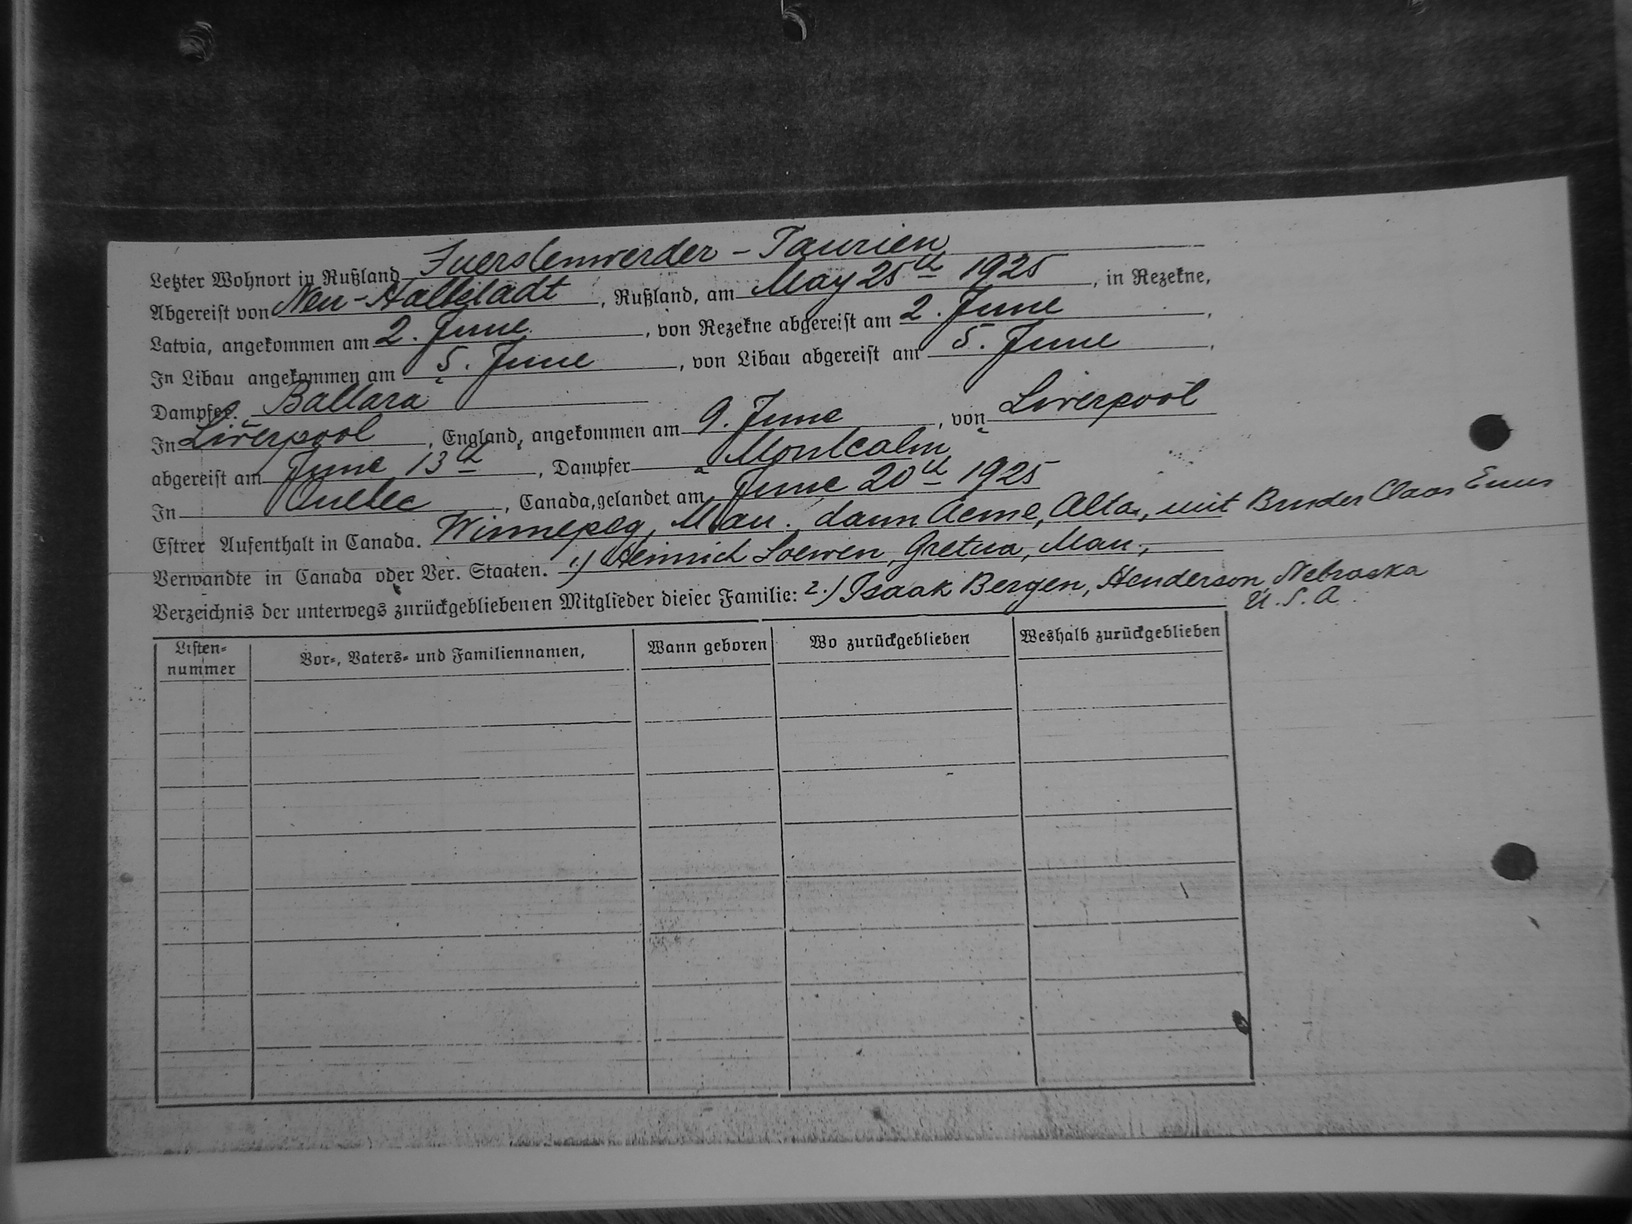 Letzter Wohnort in Rußland Fuerstenwerder - Taurien
Abgereist von Neu-Halbstadt, Rußland, am May 25th 1925, in Rezekne,
Latvia, angekommen am 2. June, von Rezekne abgereist am 2. June,
In Libau angekommen am 5. June, von Libau abgereist am 5. June,
Dampfer. Baltara
In Liverpool, England, angekommen am 9. June, von Liverpool
abgereist am June 13th, Dampfer Montcalm
In Quebec, Canada, gelandet am June 20th 1925
Estrer Aufenthalt in Canada. Winnepeg, Man., dann Acme, Alta., mit Bruder Claas Enns
Verwandte in Canada oder Ver. Staaten. 1.) Heinrich Loewen, Gretna, Man.,
Verzeichnis der unterwegs zurückgebliebenen Mitglieder dieser Familie: 2.) Isaak Bergen, Henderson, Nebraska
U. S. A.
Listen-nummer Vor-, Vaters- und Familiennamen, Wann geboren Wo zurückgeblieben Weshalb zurückgeblieben